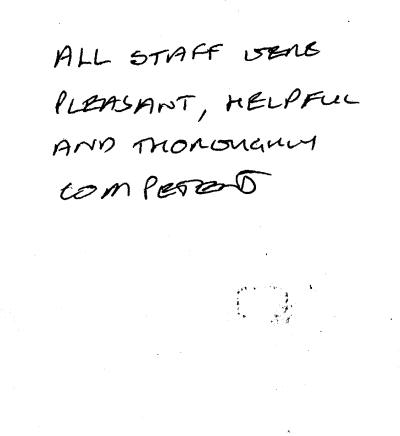 ALL STAFF WERE
PLEASANT, HELPFUL
AND THOROUGHLY
COMPETENT